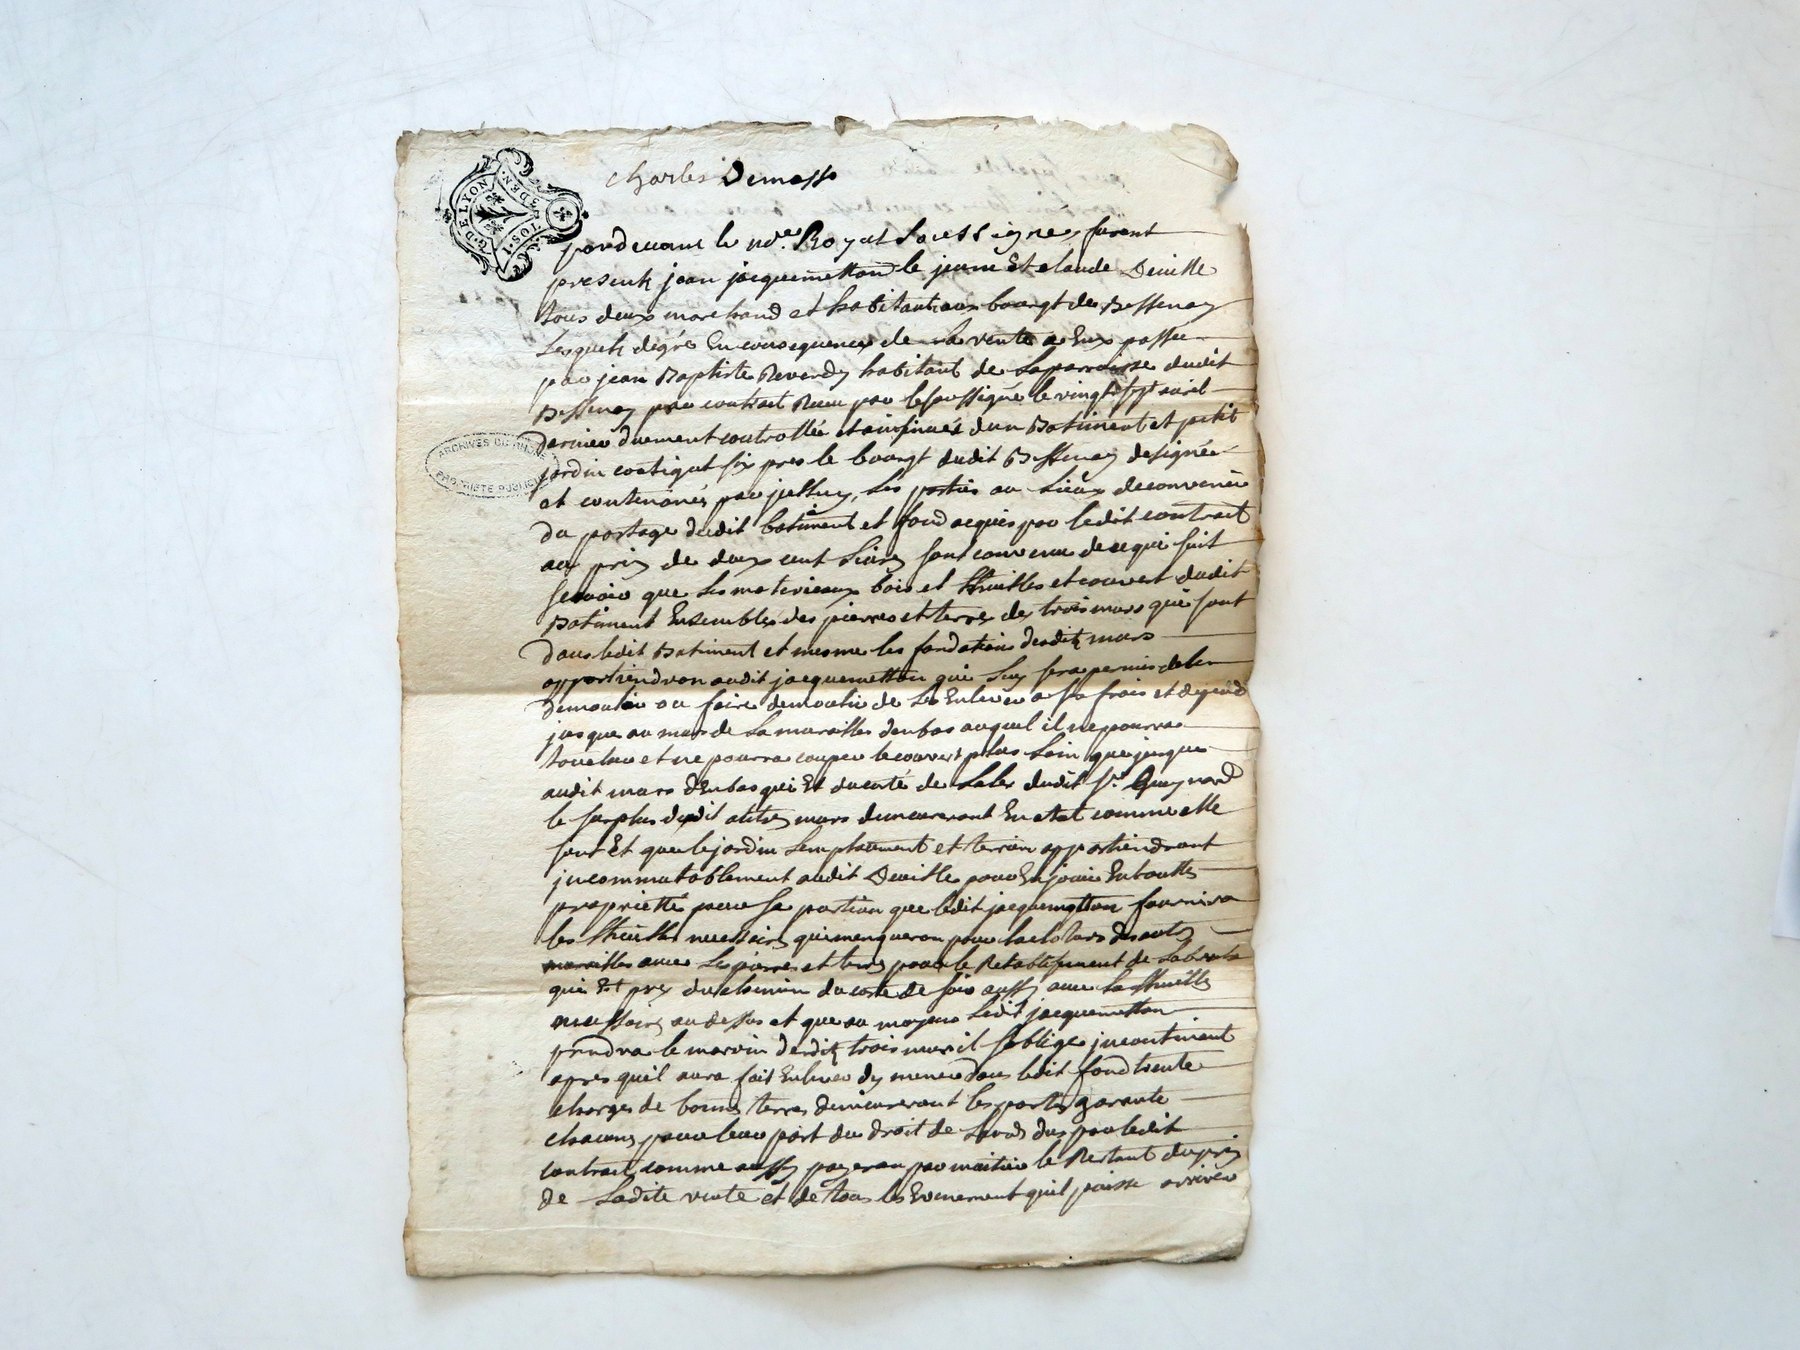 charles Demasso
G·DE LYON
1·SOL 3·DEN.
pardevant le nore Royal soussigné, furent
presents jean jacquemetton le jeune Et claude Deville
tous deux marchand et habitant au bourgt de Bessenay
Lesquels degré En consequence de la vente a Eux passée
par jean Baptiste Reverdy habitant de Laparroisse dudit
Bessenay par contrart Receu par lesoussigné le vingt sept avril
dernier duement controllé et insinués dun Batiment et petit
jardin contigut six pres le bourgt dudit Bessenay designée
ARCHIVES DU RHONE
PROPRIETE PUBLIQUE
et contenans par jcelluy, Les parties au Lieux deconvenir
du partage dudit batiment et fond acquis par ledit contrart
au prix de deux cent Livres sont convenu de ce qui suit
scavoir que Les materieaux bois et thuilles et couvert dudit
Batiment Ensembles des pierres et terres des trois murs qui sont
dans ledit Batiment et mesme les fondations desdits murs
appartiendron audit jacquemetton qui Luy sera permis de les
demoulir ou faire demoulir de Les Enlever a ses frais et depend
jusque au mur de La muraille denbas auquel il ne pourra
toucher et ne pourra couper le couvert plus Loin que jusque
audit murs denbas qui Et du coté de Laler dudit sr. Guynard
le surplus dudit autres murs demeureront En etat comme elle
sont Et que le jardin Lemplacement et terrain appartiendront
jncommutablement audit Deville pour En jouir En toutte
propriette pour sa portion que ledit jacquemetton fournira
les thuilles necessaires qui menqueron pour la cloture des autres
murailles avec Les pierres et terres pour le Retablissement de Labreche
qui Et pres du chemin du costé de soir aussy avec La thuille
necessaires au dessus et que au moyens Ledit jacquemetton
prendra le marrin desdits trois murs il soblige jncontinent
apres quil aura fait Enlever dy mener dans ledit fond trente
charges de bonnes terres demeureront les parties garante
chacuns pour leur part du droit de Lauds dus par ledit
contrart comme aussy payeron par moitier le Restant du prix
de Ladite vente et de tous les Evenement quil puisse arriver